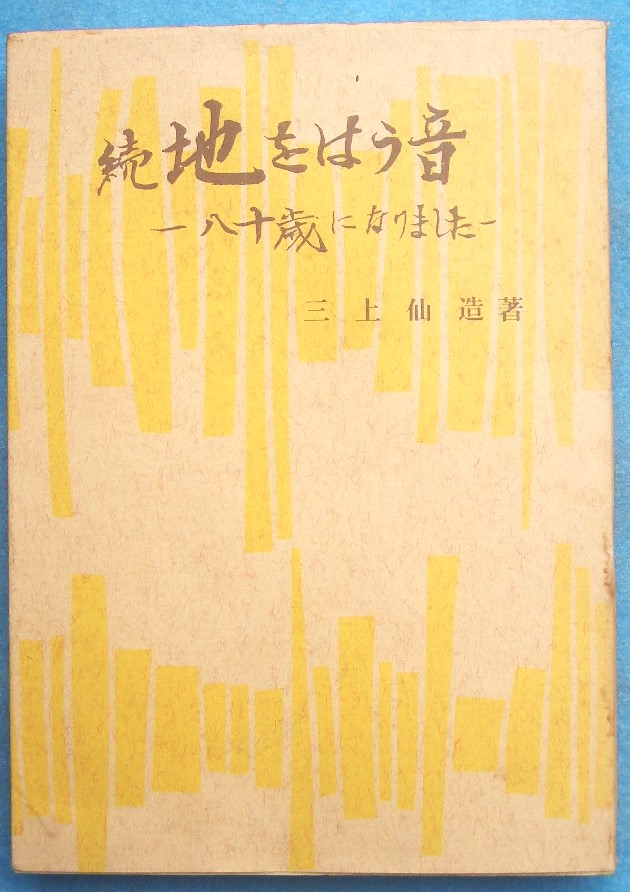 続 地をはう音
―八十歳になりました―
三上仙造著